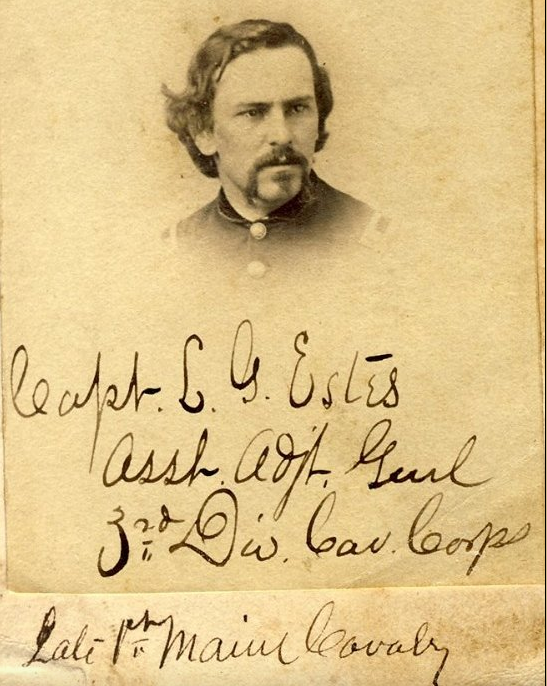 Capt. L. G. Estes
Asst. Adjt. Genl
3rd Div. Cav. Corps
Late 1st Maine Cavalry